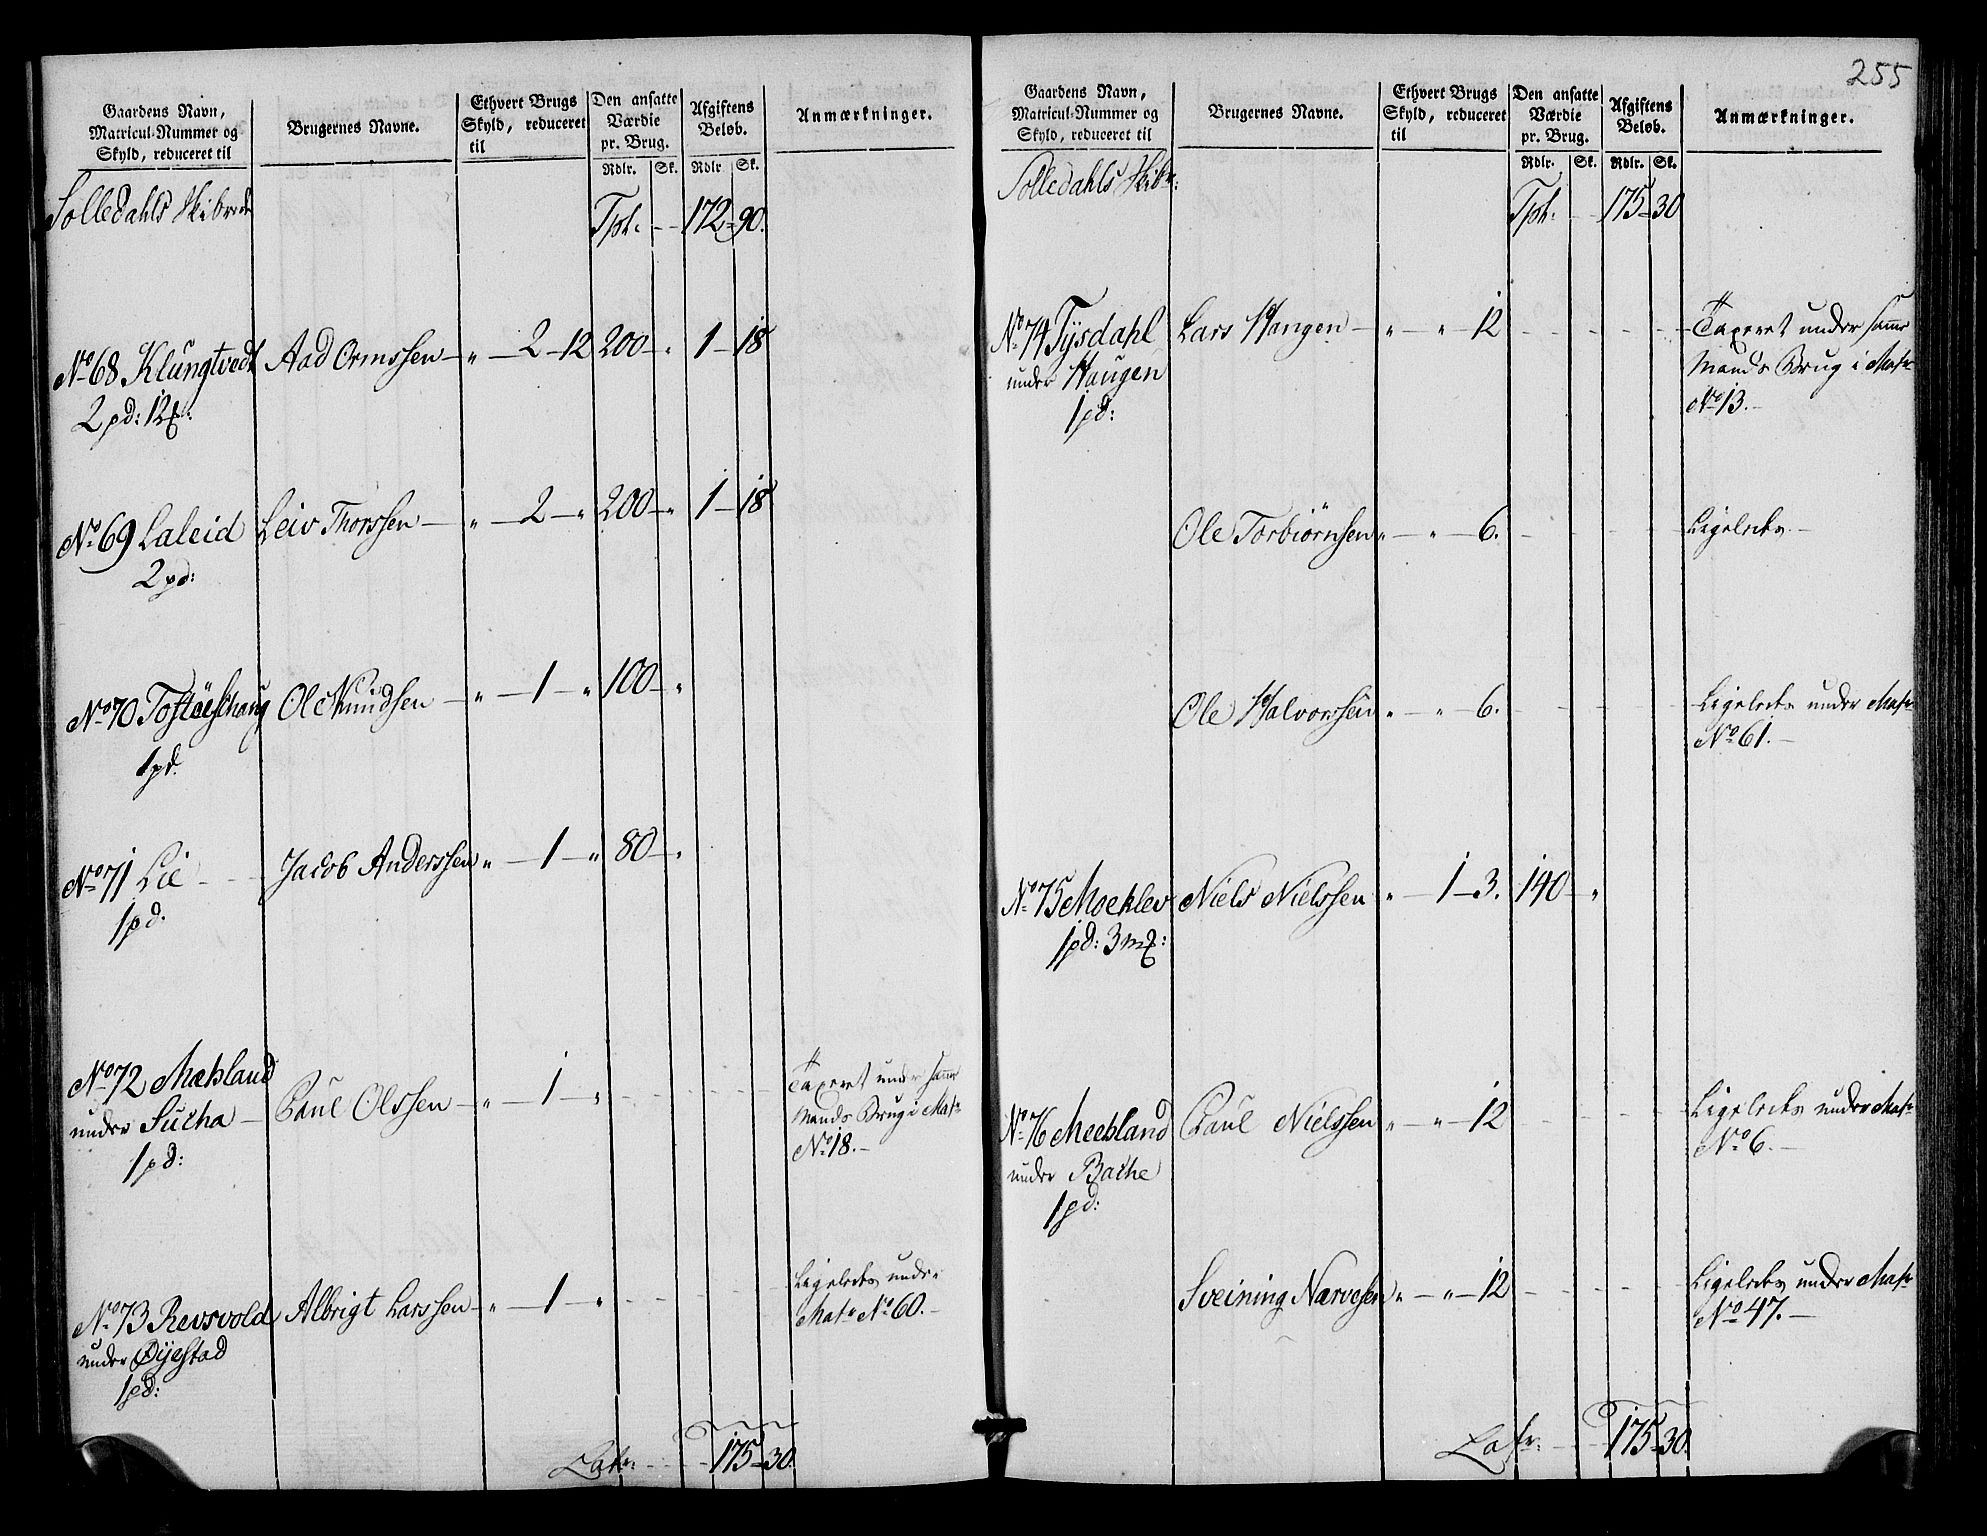 255
Gaardens Navn,
Matricul-Nummer og
Skyld, reduceret til
Brugernes Navne.
Ethvert Brugs
Skyld, reduceret
til
Den ansatte
Værdie
pr. Brug.
Rdlr. Sk.
Afgiftens
Beløb.
Rdlr Sk.
Anmærkninger.
Solledahls Skibrede
Tpt. - - 172 - 90.
No 68 Klungtvedt Aad Ormssen - " - 2 - 12 200 - " 1 - 18
2 pd: 12
No 69 Laleid Leiv Thorssen - " - 2 - " 200 - " 1 - 18
2 pd:
No 70 Ole Knudsen - " - 1 - " 100 - "
1 pd.
No 71 Lie - - Jacob Anderssen " - 1 - " 80 - "
1 pd.
No 72 Mæbland
under Sucha - Paul Olssen - " - 1 - " - - - - Taxeret under samme
Mands Brug i Matr
No 18. -
1 pd:
No 73 Revsvold Albrigt Larssen - " - 1 - " - - - - Ligeledes under
Matr No 60. -
under Øyestad
1 pd:
Latr. - - - 175 - 30.
Gaardens Navn,
Matricul-Nummer og
Skyld, reduceret til
Brugernes Navne.
Ethvert Brugs
Skyld, reduceret
til
Den ansatte
Værdie
pr. Brug.
Rdlr. Sk.
Afgiftens
Beløb.
Rdlr. Sk.
Anmærkninger.
Solledahls Skibr:
Tpt. - - 175 - 30
No 74 Tysdahl Lars Haugen - " - " - 12 - - - - Taxeret under samme
under Haugen Mands Brug i Matr
1 pd: No 13. -
Ole Torbiørnsen " - " - 6. - - - - Ligeledes -
Ole Halvorssen " - " - 6. - - - - Ligeledes under Matr
No 61. -
No 75 Moeklev Niels Nielssen " - 1 - 3. 140 - "
1 pd: 3 mk:
No 76 Meebland Paul Nielssen " - " - 12 - - - - Ligeledes under Matr
No 6. -
under Bache
1 pd:
Sveining Narvesen " - " - 12 - - - - Ligeledes under Matr
No 47. -
Latr. - - - 175 - 30.